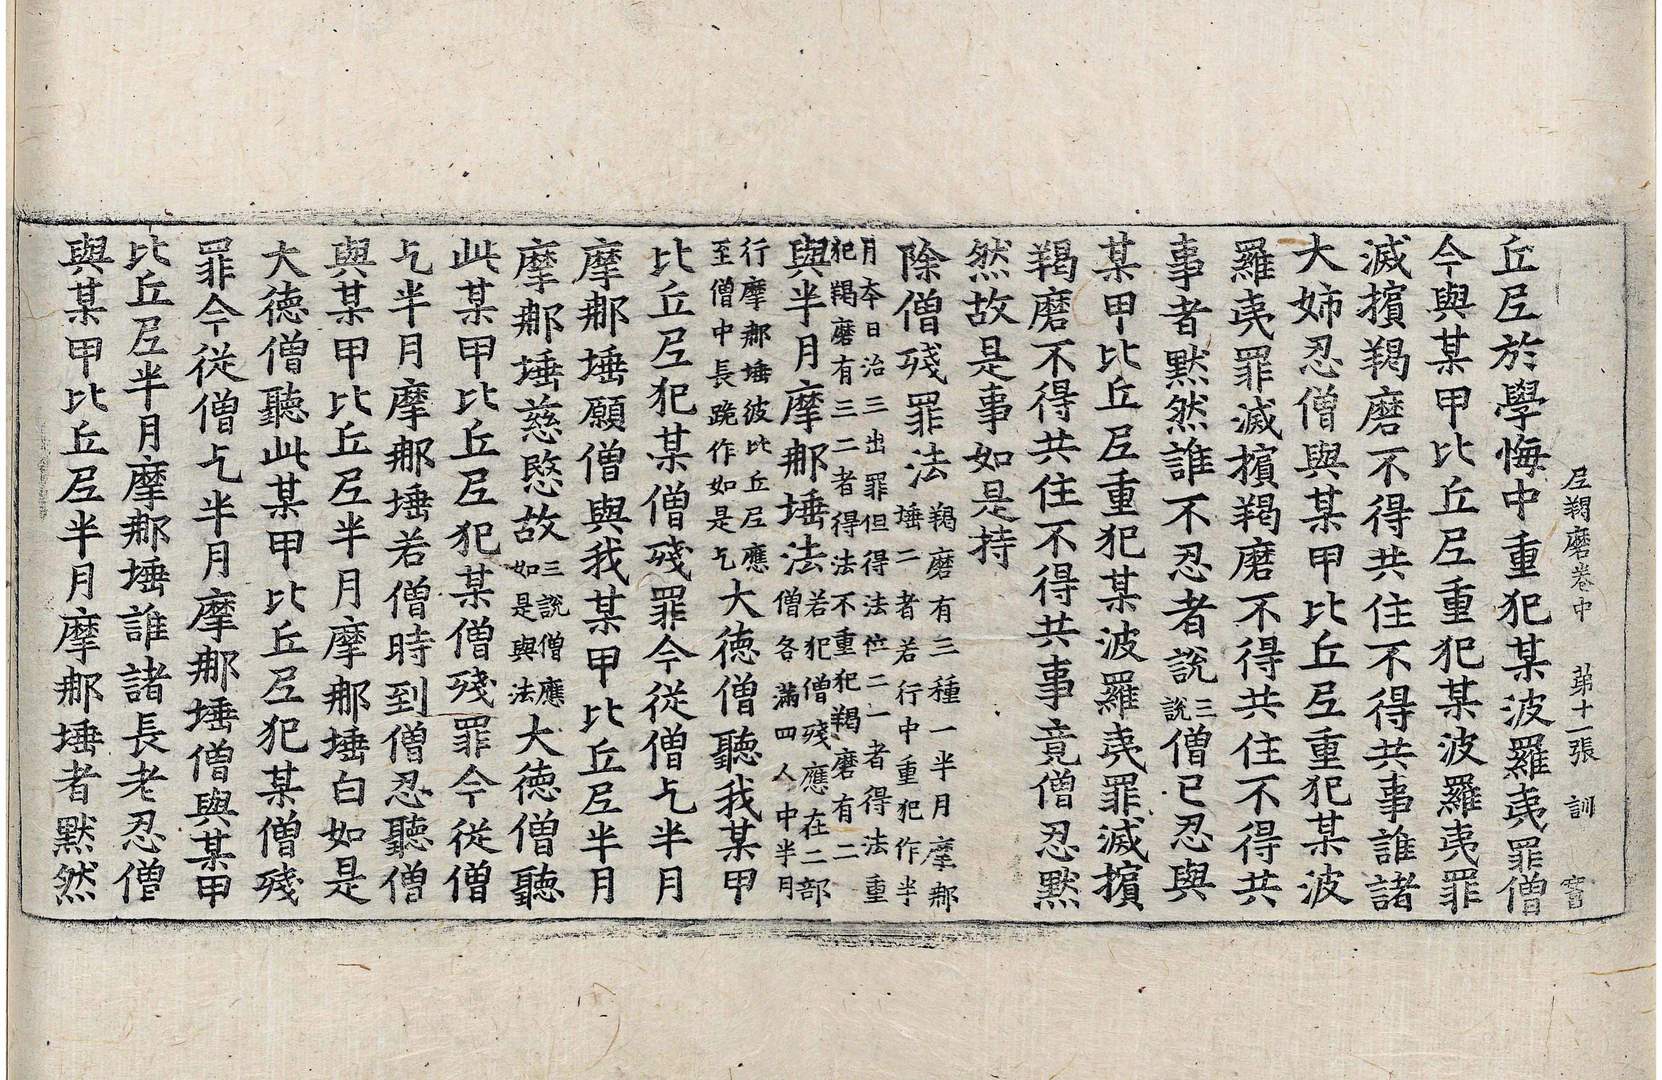 尼羯磨卷中　第十一張　訓
丘尼於學悔中重犯某波羅夷罪僧
今與某甲比丘尼重犯某波羅夷罪
滅擯羯磨不得共住不得共事誰諸
大姉忍僧與某甲比丘尼重犯某波
羅夷罪滅擯羯磨不得共住不得共
事者默然誰不忍者說三說僧已忍與
某甲比丘尼重犯某波羅夷罪滅擯
羯磨不得共住不得共事竟僧忍默
然故是事如是持
除僧殘罪法羯磨有三種一半月摩那埵二者若行中重犯作半
月本日治三出罪但得法位二一者得法重犯羯磨有三二者得法不重犯羯磨有二
與半月摩那埵法若犯僧殘應在二部僧各滿四人中半月
行摩那埵彼比丘尼應至僧中長跪作如是乞大德僧聽我某甲
比丘尼犯某僧殘罪今從僧乞半月
摩那埵願僧與我某甲比丘尼半月
摩那埵慈愍故三說僧應如是與法大德僧聽
此某甲比丘尼犯某僧殘罪今從僧
乞半月摩那埵若僧時到僧忍聽僧
與某甲比丘尼半月摩那埵白如是
大德僧聽此某甲比丘尼犯某僧殘
罪今從僧乞半月摩那埵僧與某甲
比丘尼半月摩那埵誰諸長老忍僧
與某甲比丘尼半月摩那埵者默然